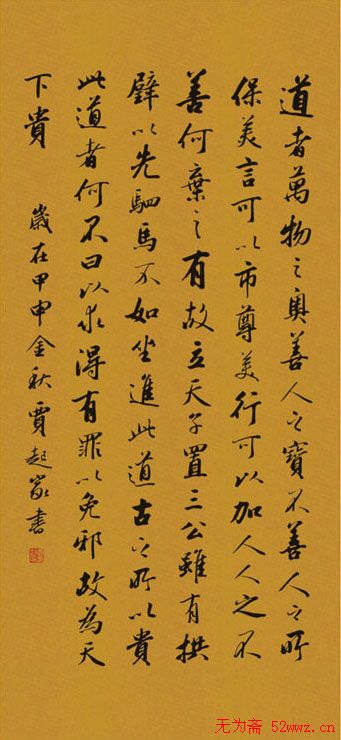 道者萬物之奧善人之寶不善人之所
保美言可以市尊美行可以加人人之不
善何棄之有故立天子置三公雖有拱
璧以先駟馬不如坐進此道古之所以貴
此道者何不曰以求得有罪以免邪故為天
下貴
歲在甲申金秋賈起家書
无为斋 52wwz.cn